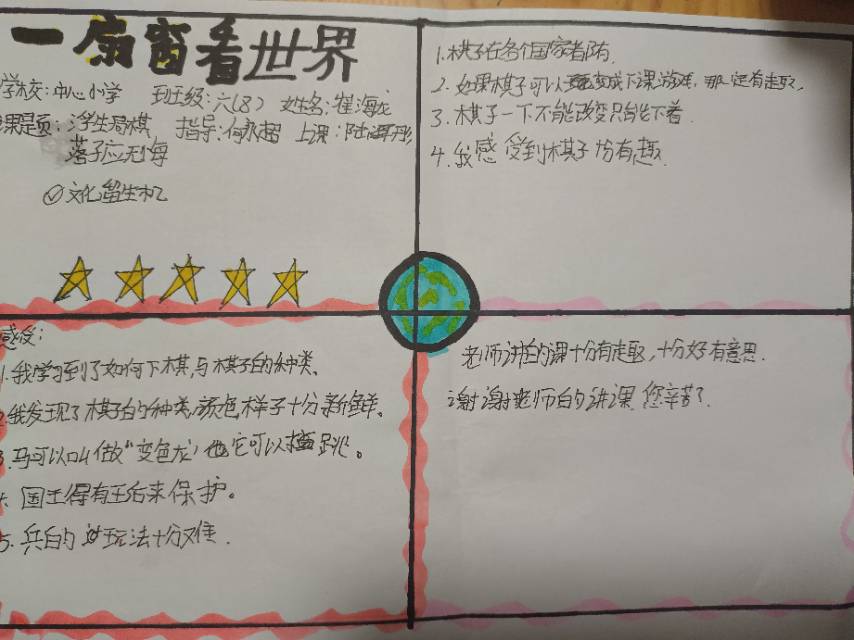 一扇窗看世界
学校:中心小学 班级:六(8) 姓名:崔海龙
课题页:浮生局棋 指导:何永超 上课:陆
落子应无悔
文化留生机
1.棋子在各个国家都有.
2.如果棋子可以变成下课游戏,那一定有趣.
3.棋子一下不能改变只能下着.
4.我感受到棋子十分有趣.
感受:
1.我学习到了如何下棋,与棋子的种类.
2.我发现了棋子的种类,颜色,样子十分新鲜.
3.马可以叫做"变色龙"它可以跳。
4.国王得有王后来保护。
5.兵的玩法十分难.
老师讲的课十分有趣,十分好有意思.
谢谢老师的讲课.您辛苦了.